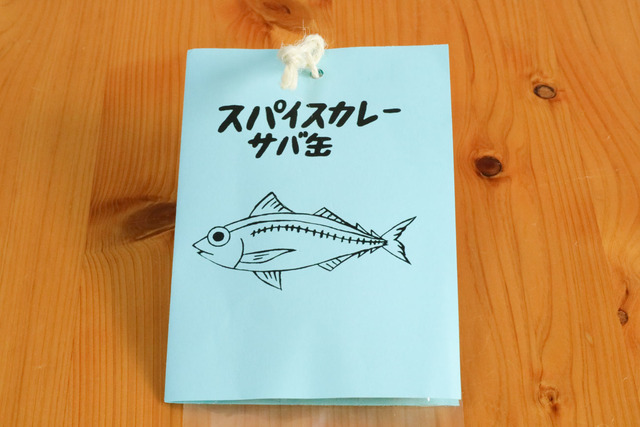 スパイスカレー
サバ缶